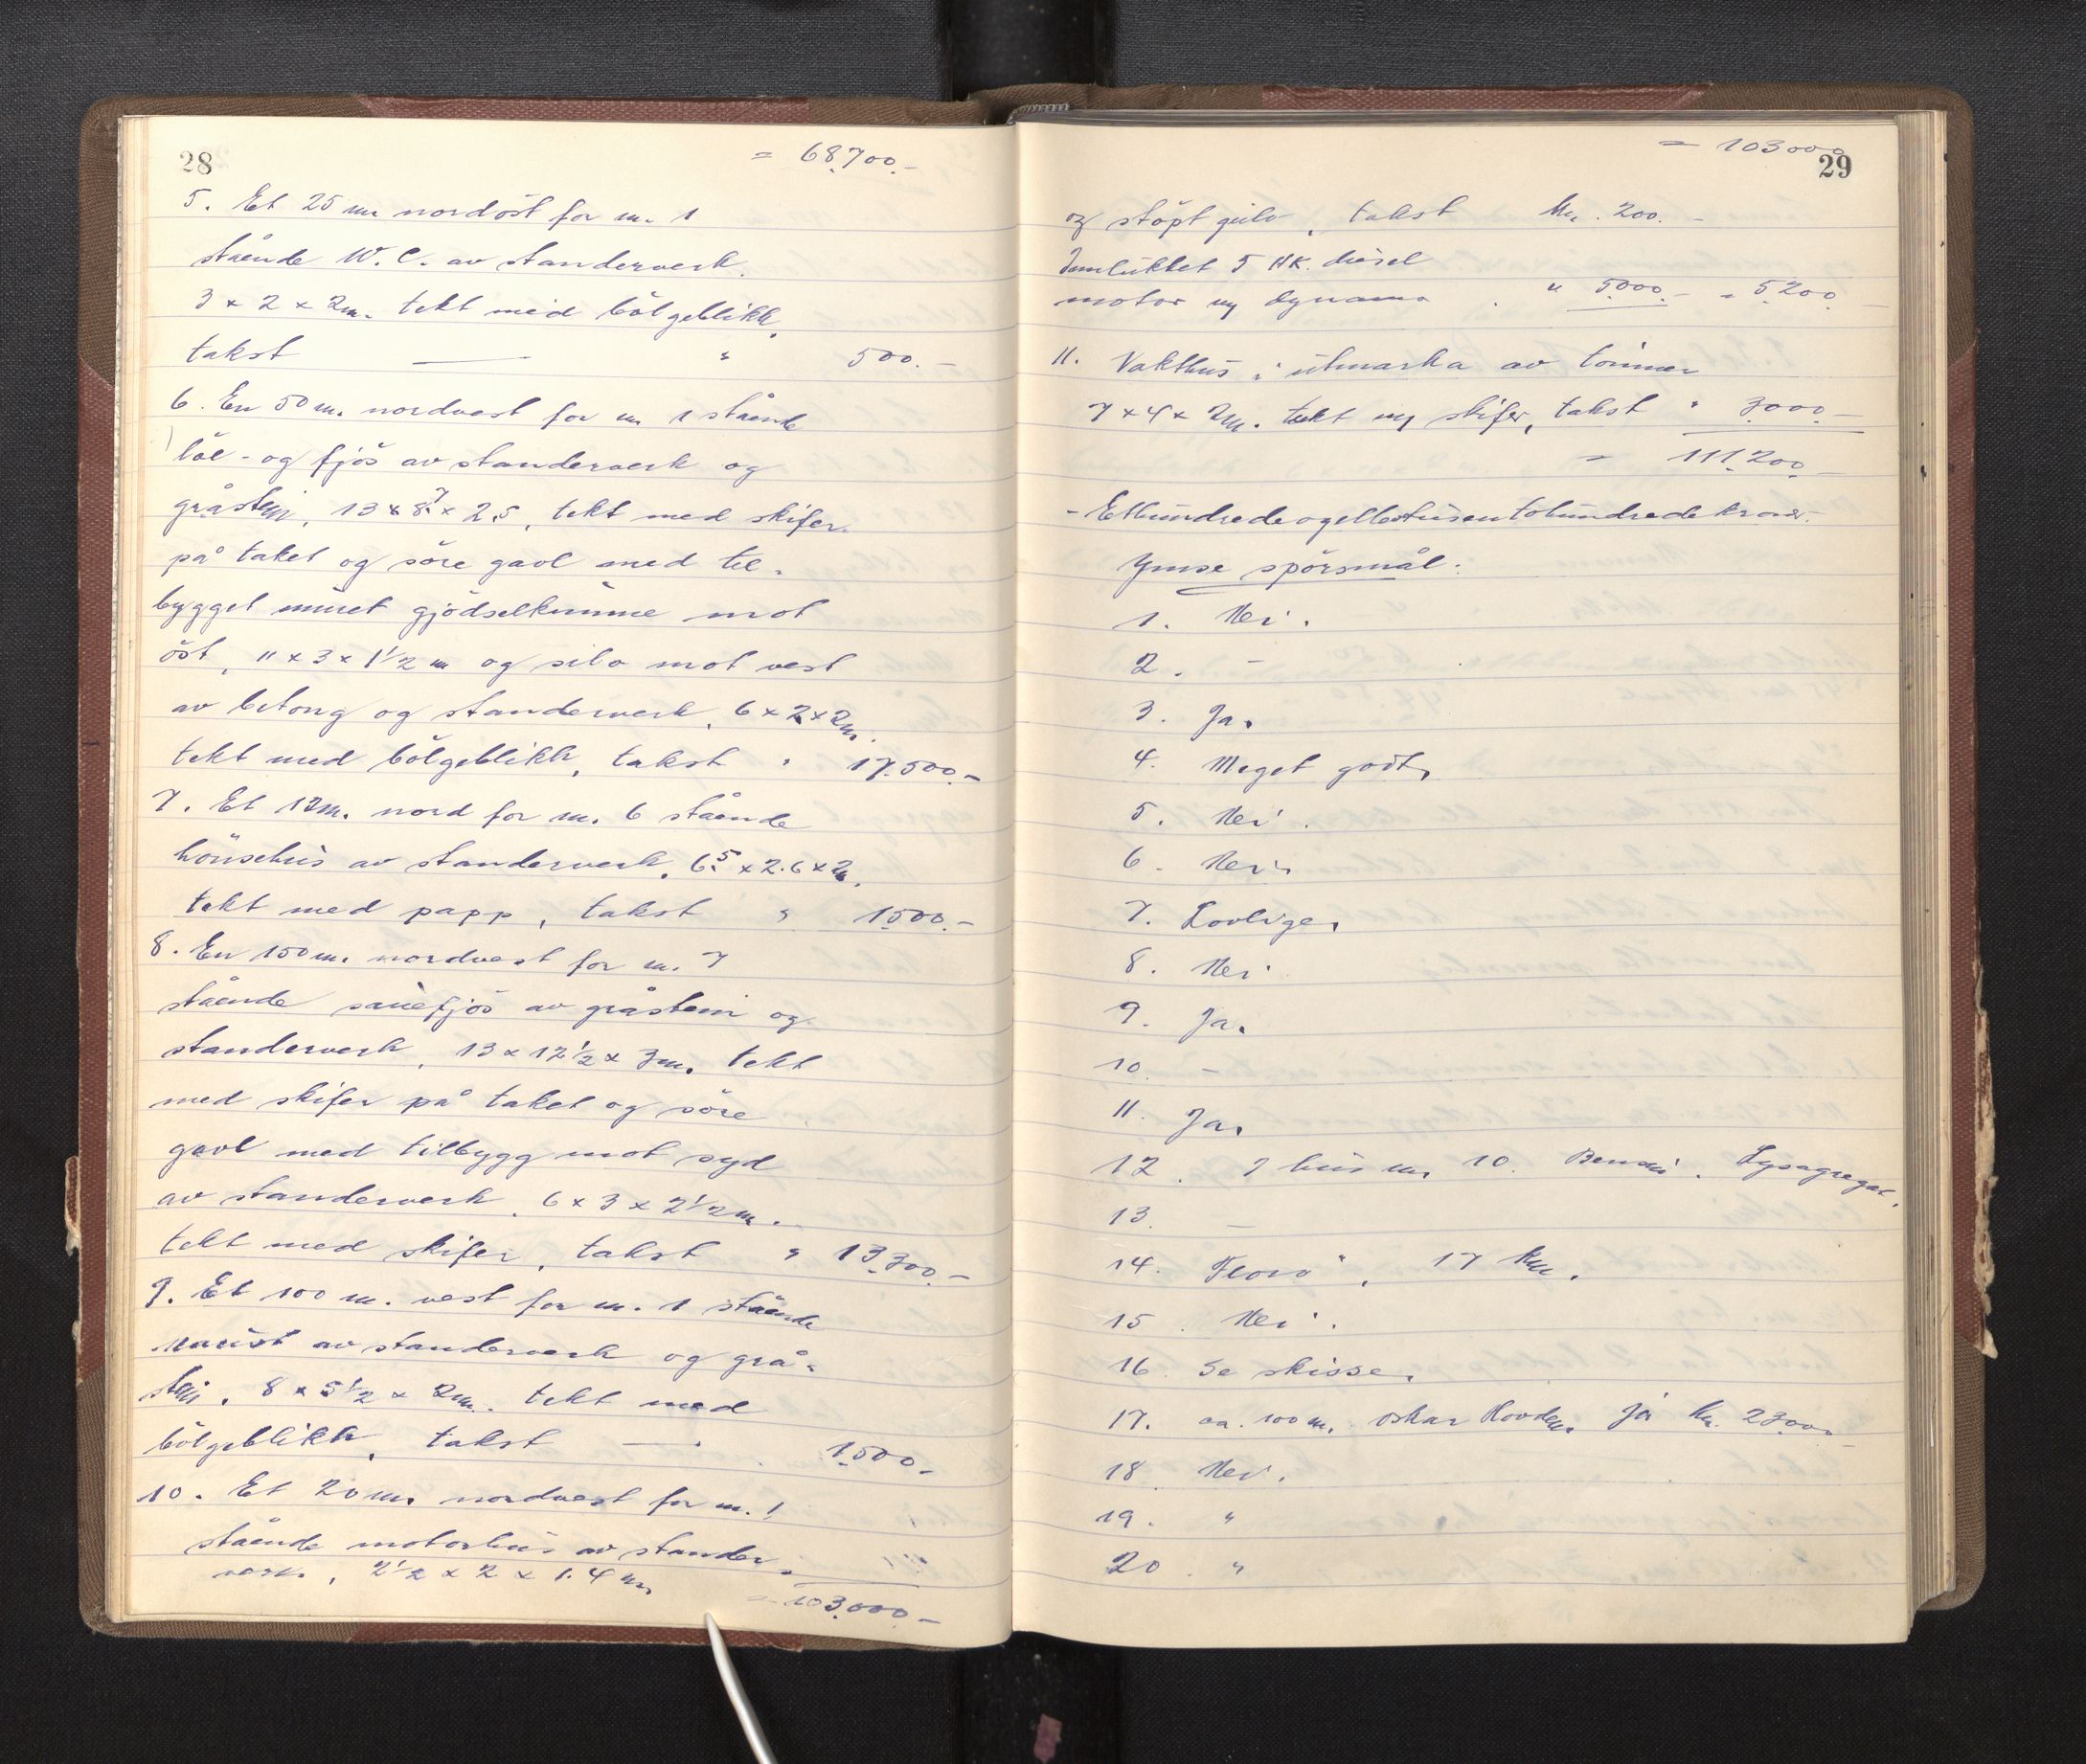 28
= 68.700.-
5. Et 25 m. nordöst for m. 1
stående W.C. av standerverk.
3 x 2 x 2m. tekt med bölgeblikk,
takst — " 500.-
6. En 50 m. nordvest for m. 1 stående
löe- og fjös av standerverk og
gråstein, 13 x 8.7 x 2.5, tekt med skifer
på taket og söre gavl med til-
bygget muret gjödselkumme mot
öst, 11 x 3 x 1 1/2 m og silo mot vest
av betong og standerverk, 6 x 2 x 2m.
tekt med bölgeblikk, takst " 17.500.-
7. Et 12m. nord for m. 6 stående
hönsehus av standerverk, 6.5 x 2.6 x 2.
tekt med papp, takst " 1500.-
8. En 150 m. nordvest for m. 7
stående sauefjös av gråstein og
standerverk, 13 x 12 1/2 x 3m. tekt
med skifer på taket og söre
gavl med tilbygg mot syd
av standerverk, 6 x 3 x 2 1/2 m.
tekt med skifer, takst " 13.300.-
9. Et 100 m. vest for m. 1 stående
naust av standerverk og grå-
stein, 8 x 5 1/2 x 2m. tekt med
bölgeblikk, takst — " 1.500.-
10. Et 20 m. nordvest for m. 1
stående motorhus av stander-
verk, 2 1/2 x 2 x 1.4 m
= 103.000.-
= 103000
29
og stöpt gulv, takst kr. 200.-
Innlukket 5 HK. diesel
motor og dynamo . " 5000.- = 5200.-
11. Vakthus i utmarka av tömmer
7 x 4 x 2m. tekt m/ skifer, takst " 3000.-
= 111.200.-
- Etthundredeogellevetusentohundrede kroner.
Ymse spörsmål.
1. Nei.
2. -
3. Ja.
4. Meget godt.
5. Nei.
6. Nei.
7. Lovlige.
8. Nei.
9. Ja.
10. -
11. Ja.
12. I hus m. 10. Bensin. Lysagregat.
13. -
14. Florö, 17 km.
15. Nei.
16. Se skisse.
17. ca. 100 m. Oskar Hovden ja kr. 2300.-
18. Nei.
19. "
20. "